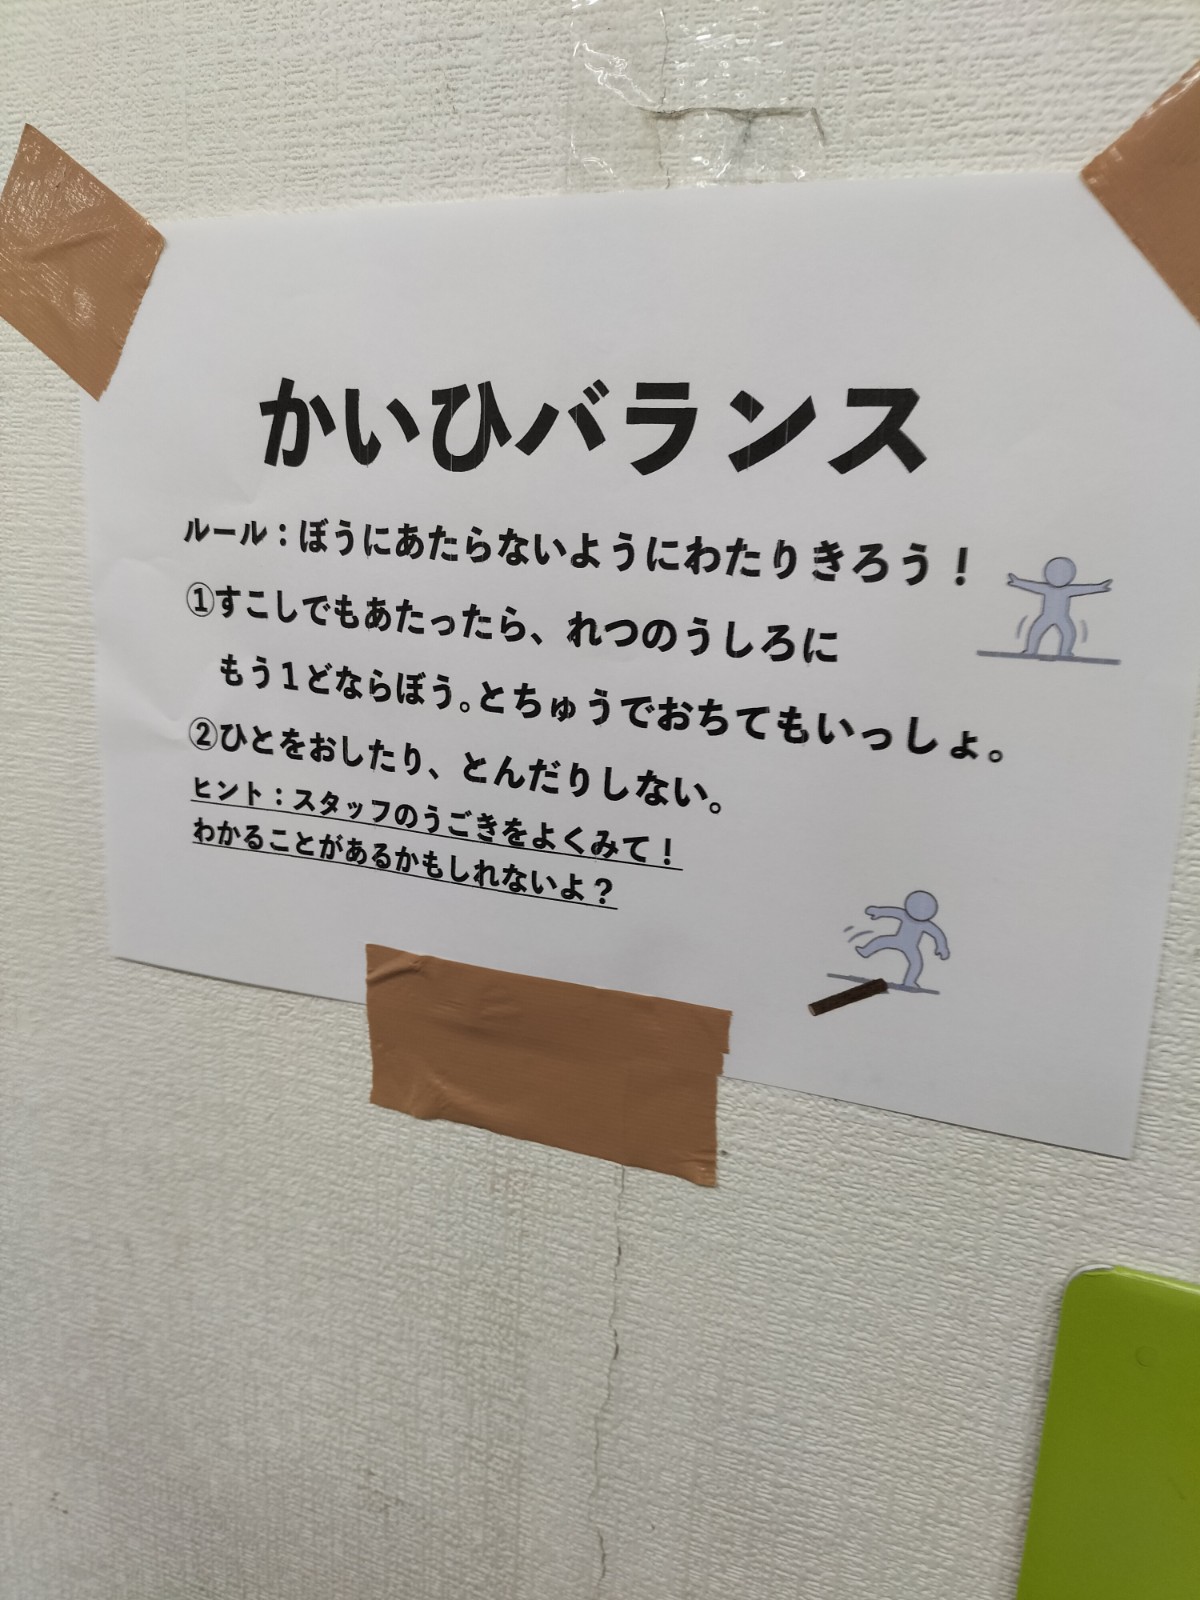 かいひバランス
ルール：ぼうにあたらないようにわたりきろう！
①すこしでもあたったら、れつのうしろに
もう１どならぼう。とちゅうでおちてもいっしょ。
②ひとをおしたり、とんだりしない。
ヒント：スタッフのうごきをよくみて！
わかることがあるかもしれないよ？